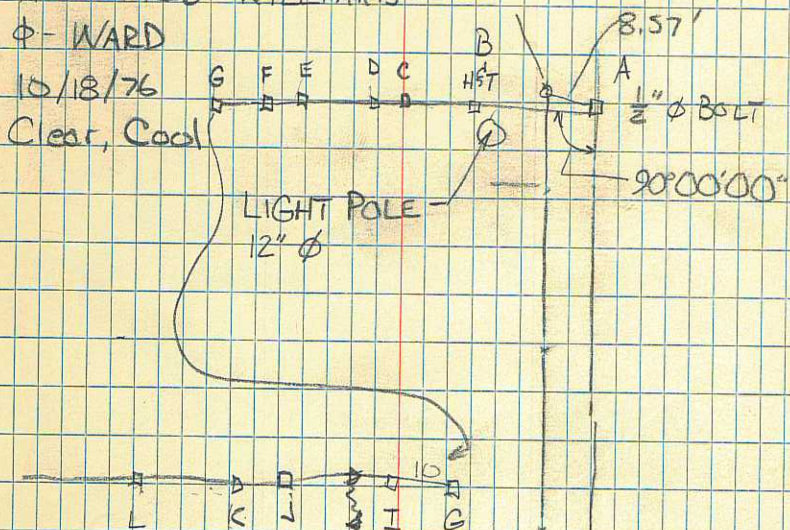 ϕ - WARD
10/18/76
Clear, Cool
8.57'
G F E D C B A
H&T
1/2" ϕ BOLT
90°00'00"
LIGHT POLE
12" ϕ
10
L J I G